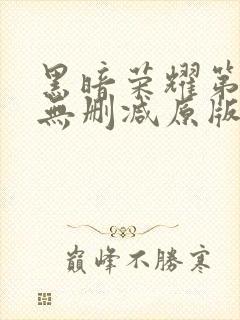 黑暗荣耀第
無删减原版
巅峰不勝寒